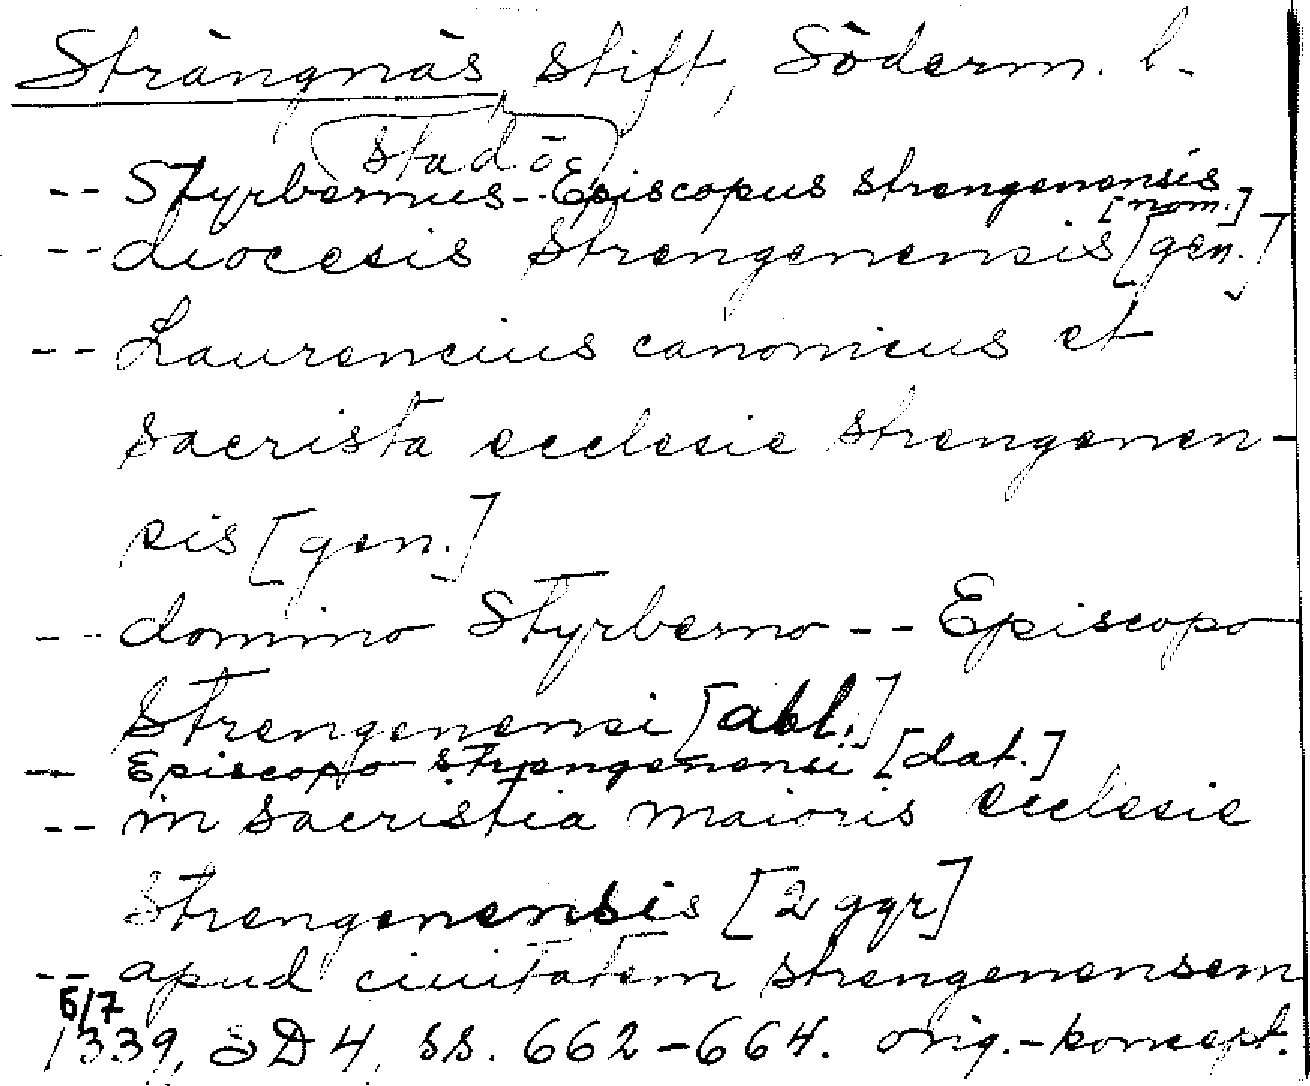 Strängnäs stift, Söderm. l.
stad ö
-- Styrbernus -- Episcopus strengenensis [nom.]
-- diocesis strengenensis [gen.]
-- Laurencius canonicus et
sacrista ecclesie strengenen-
sis [gen.]
-- domino Styrberno -- Episcopo
strengenensi [abl.]
-- Episcopo strengenensi [dat.]
-- in sacristia maioris ecclesie
strengenensis [2 ggr]
-- apud ciuitatem strengenensem
5/7
1339, SD 4, ss. 662-664. orig.-koncept.